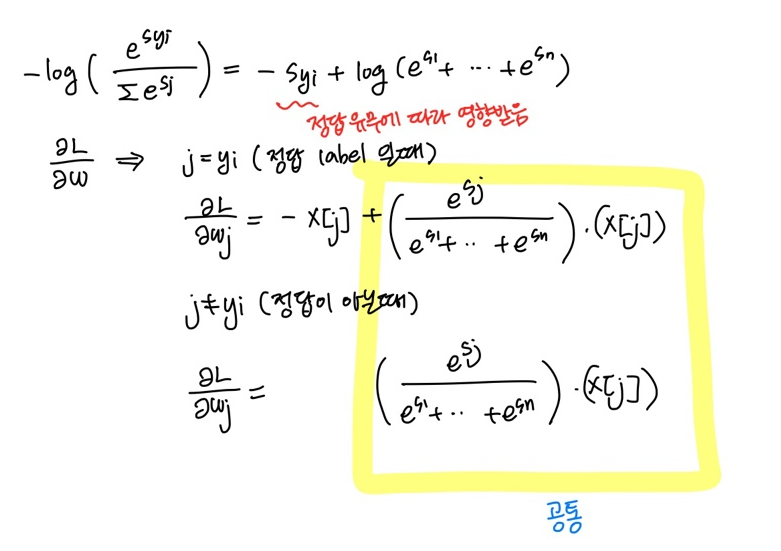 -log( e^{syi} / Σe^{sj} ) = - syi + log (e^{s1} + ··· + e^{sn})
정답 유무에 따라 영향받음
∂L/∂w ⇒ j = yi (정답 label 일때)
∂L/∂wj = - x[j] + ( e^{sj} / e^{s1} + ·· + e^{sn} ) · (x[j])
j ≠ yi (정답이 아닐때)
∂L/∂wj = ( e^{sj} / e^{s1} + ·· + e^{sn} ) · (x[j])
공통